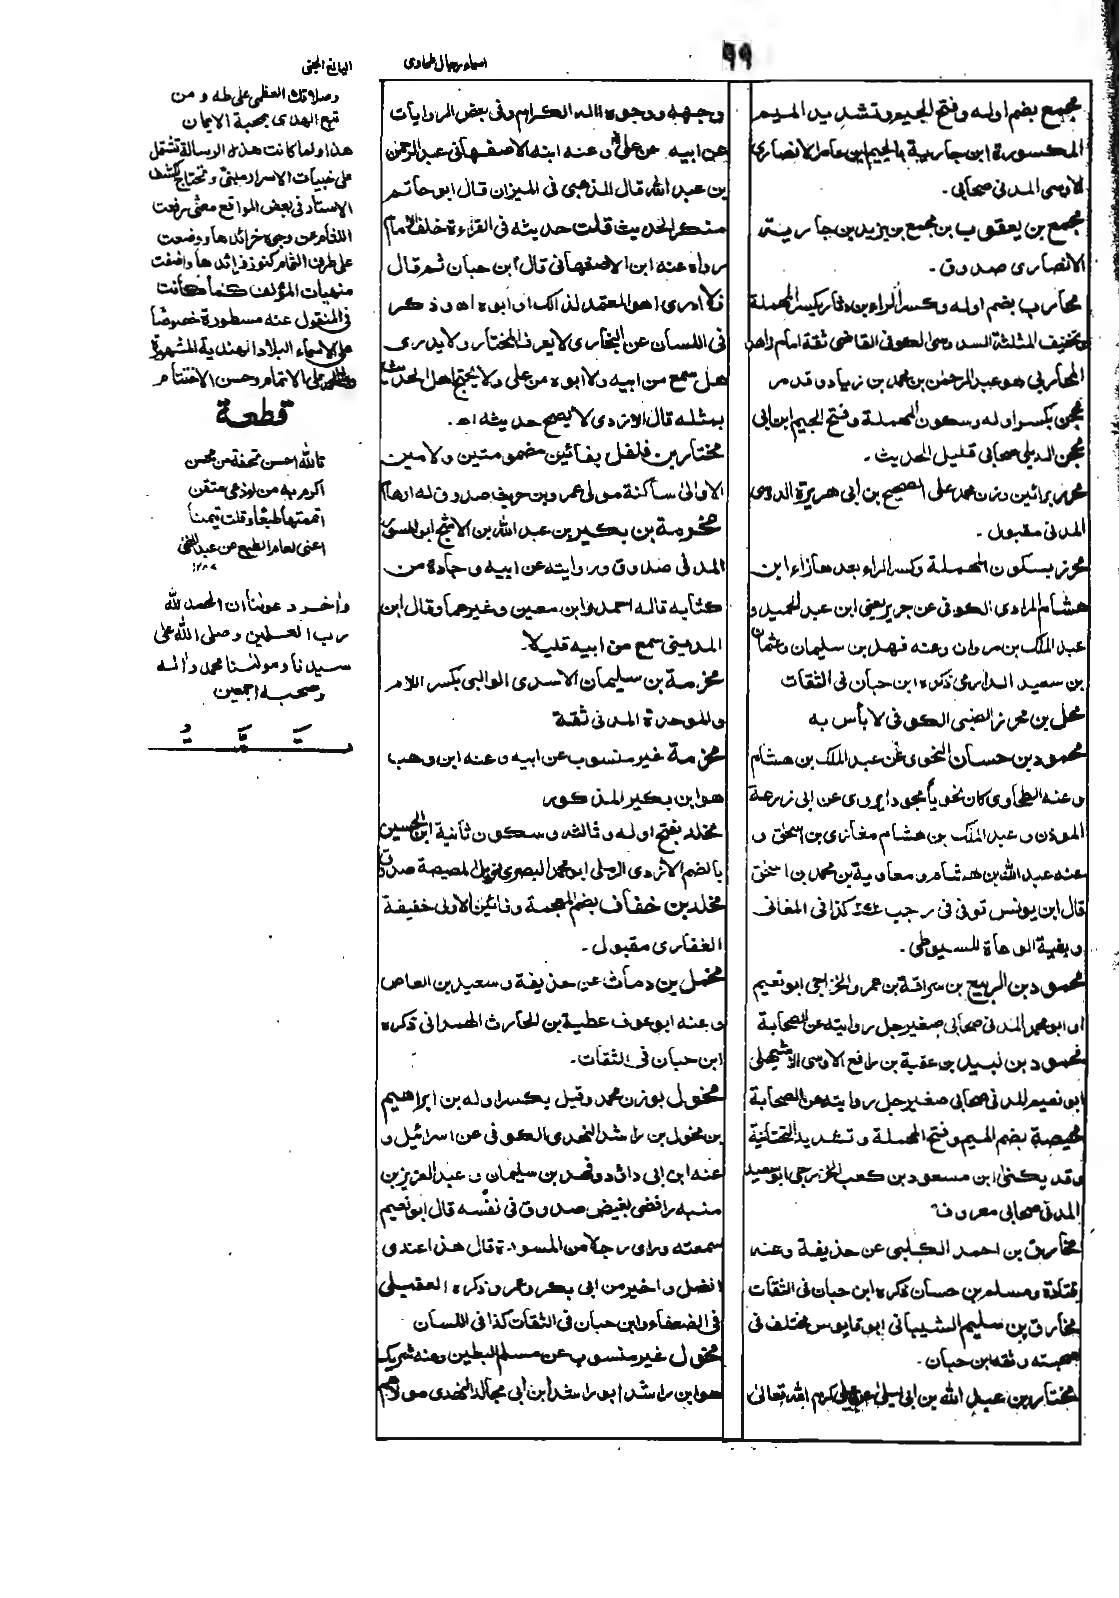 ٩٩
اسماء رجال طحاوی
اليانع الجنى
مجمع بضم اوله وفتح الجيم وتشديد الميم
المكسورة ابن جارية بالجيم ابن عامر الانصارى
الاوسى المدنى صحابى۔
مجمع بن يعقوب بن مجمع بن يزيد بن جارية
الانصارى صدوق۔
محارب بضم اوله وكسر الراء بن دثار بكسر المهملة
وتخفيف المثلثة السدوسى الكوفى القاضى ثقة امام زاهد
المحاربى هو عبد الرحمن بن محمد بن زياد وقد مر
محجن بكسر اوله وسكون المهملة وفتح الجيم ابن ابى
محجن الديلى صحابى قليل الحديث۔
محرر برائين وزن محمد على الصحيح بن ابى هريرة الدوسى
المدنى مقبول۔
محرز بسكون المهملة وكسر الراء بعدها زاء ابن
هشام المرادى الكوفى عن جرير يعنى ابن عبد الحميد و
عبد الملك بن مروان وعنه فهد بن سليمان وعثمان
بن سعيد الدارمى ذكره ابن حبان فى الثقات
محل بن محرز الضبى الكوفى لا بأس به
محمود بن حسان النحوى عن عبد الملك بن هشام
وعنه الطحاوى كان نحويا مجودا يروى عن ابى زرعة
الموذن وعبد الملك بن هشام مغازى بن اسحق و
عنه عبد الله بن هشام ومعاوية بن محمد بن اسحق
قال ابن يونس توفى فى رجب ٢٧٢ كذا فى المغانى
وبغية الوعاة للسيوطى۔
محمود بن الربيع بن سراقة بن عمرو الخزرجى ابو نعيم
او ابو محمد المدنى صحابى صغير جل روايته عن الصحابة
محمود بن لبيد بن عقبة بن رافع الاوسى الاشهلى
ابو نعيم المدنى صحابى صغير جل روايته عن الصحابة
محيصة بضم الميم وفتح المهملة وتشديد التحتانية
وقد يكنى ابن مسعود بن كعب الخزرجى ابو سعيد
المدنى صحابى معروف
مخارق بن احمد الكلبى عن حذيفة وعنه
قتادة ومسلم بن حسان ذكره ابن حبان فى الثقات
مخارق بن سليم الشيبانى ابو قابوس مختلف فى
صحبته وثقه ابن حبان۔
مختار بن عبد الله بن ابى ليلى عن على كرم الله تعالى
وجهه ووجوه اٰله الكرام وفى بعض الروايات
عن ابيه عن على وعنه ابنه الاصفهانى عبد الرحمن
بن عبد الله قال الذهبى فى الميزان قال ابو حاتم
منكر الحديث قلت حديثه فى القراءة خلف الامام
رواه عنه ابن الاصفهانى قال ابن حبان ثم قال
فلا ادرى اهو المعتمد لذالك او ابوه اه وذكر
فى اللسان عن البخارى لا يعرف المختار ولا يدرى
هل سمع من ابيه ولا ابوه من على ولا يحتج اهل الحديث
بمثله قال الازدى لا يصح حديثه اه۔
مختار بن فلفل بفائين مضمومتين ولامين
الاولى ساكنة مولى عمرو بن حريث صدوق له اوهام
مخرمة بن بكير بن عبد الله بن الاشج ابو المسور
المدنى صدوق وروايته عن ابيه وجادة من
كتابه قاله احمد وابن معين وغيرهما وقال ابن
المدينى سمع من ابيه قليلا۔
مخرمة بن سليمان الاسدى الوالبى بكسر اللام
والموحدة المدنى ثقة
مخرمة غير منسوب عن ابيه وعنه ابن وهب
هو ابن بكير المذكور
مخلد بفتح اوله وثالثه وسكون ثانية ابن الحسين
بالضم الازدى الرملى ابو محمد البصرى نزيل المصيصة صدوق
مخلد بن خفاف بضم المعجمة وفائين الاولى خفيفة
الغفارى مقبول۔
مخمل بن دماث عن حذيفة وسعيد بن العاص
وعنه ابو عوف عطية بن الحارث الهمدانى ذكره
ابن حبان فى الثقات۔
مخول بوزن محمد وقيل بكسر اوله بن ابراهيم
بن مخول بن راشد النهدى الكوفى عن اسرائيل و
عنه ابن ابى داؤد وفهد بن سليمان وعبد العزيز بن
منبه رافضى بغيض صدوق فى نفسه قال ابو نعيم
سمعته وراى رجلا من المسودة قال هذا عندى
افضل واخير من ابى بكر وعمر وذكره العقيلى
فى الضعفاء وابن حبان فى الثقات كذا فى اللسان
مخول غير منسوب عن مسلم البطين وعنه شريك
هو ابن راشد ابو راشد ابن ابى مجالد النهدى مولاهم
وصلاتك العظمى على طه ومن
تبع الهدى بمحبة الايمان
هذا ولما كانت هذه الرسالة تشتمل
على خبيات الاسرار مبنى وتحتاج كشف
الاستار فى بعض المواقع معنى رفعت
اللثام عن وجوه خرائدها ووضعت
على طرف الثمام كنوز فرائدها واضفت
منهيات المؤلف كما كانت
فى المنقول عنه مسطورة خصوصا
على الاسماء البلاد الهندية المشهورة
والحمد على الاتمام وحسن الاختتام
قطعة
تالله احسن تحفة من محسن
اكرم به من لوذعى متقن
اتممتها طبعا وقلت تيمنا
اعنى لعام الطبع من عبد الغنى
١٢٨٧
واٰخر دعوانا ان الحمد لله
رب العٰلمين وصلى الله على
سيدنا ومولٰنا محمد واٰله
وصحبه اجمعين